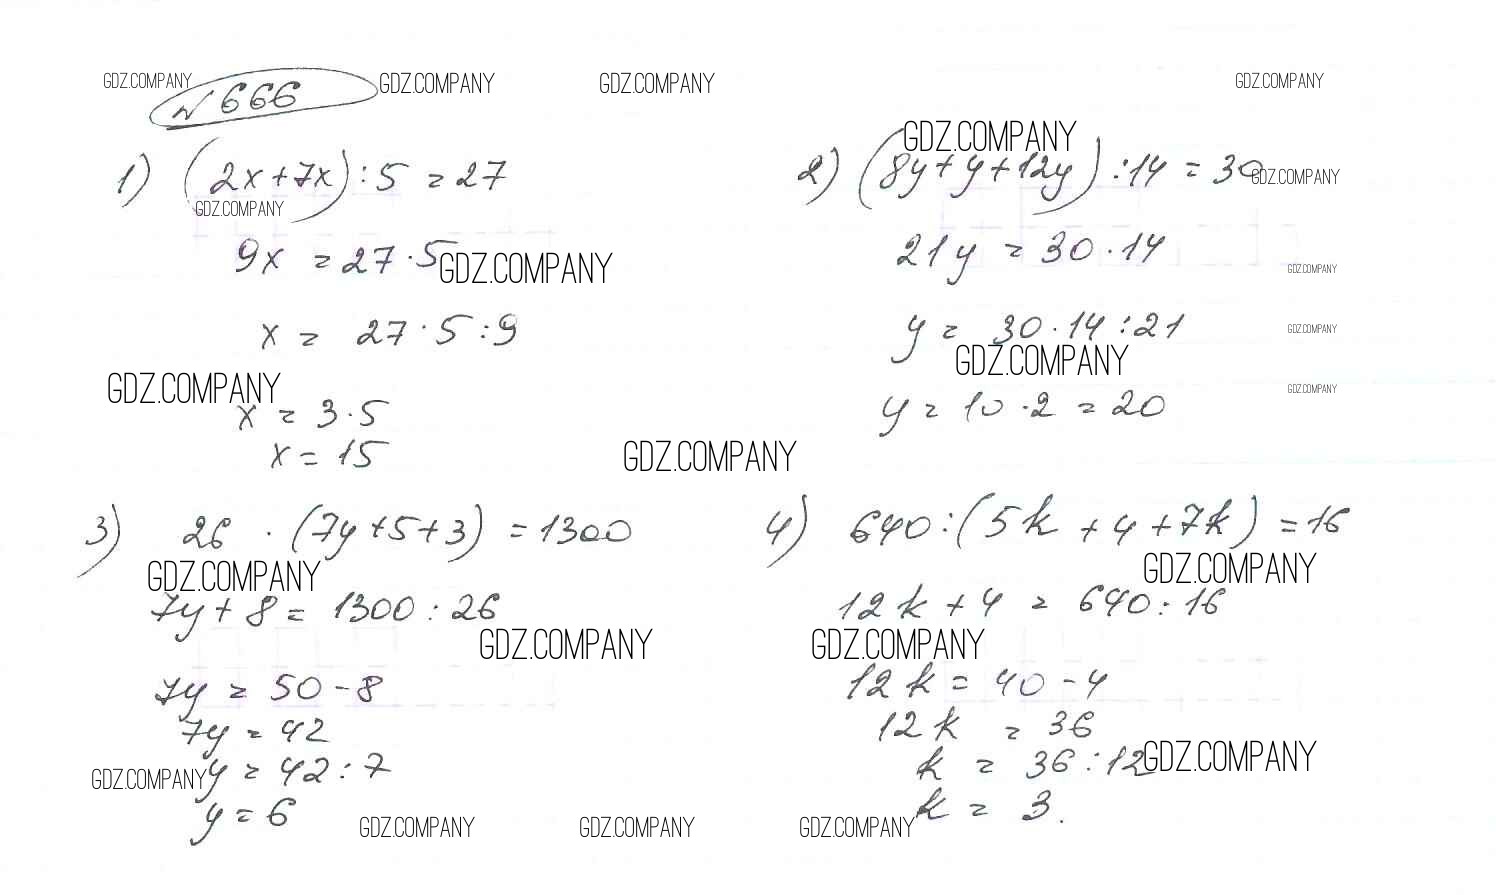 GDZ.COMPANY GDZ.COMPANY GDZ.COMPANY GDZ.COMPANY
№ 666
GDZ.COMPANY
1) (2x+7x):5 = 27
2) (8y+y+12y):14 = 30
GDZ.COMPANY
GDZ.COMPANY
9x = 27·5
21y = 30·14
GDZ.COMPANY
GDZ.COMPANY
x = 27·5:9
y = 30·14:21
GDZ.COMPANY
GDZ.COMPANY
GDZ.COMPANY
GDZ.COMPANY
x = 3·5
y = 10·2 = 20
x = 15
GDZ.COMPANY
3) 26·(7y+5+3) = 1300
4) 640:(5k+4+7k) = 16
GDZ.COMPANY
GDZ.COMPANY
7y+8 = 1300:26
12k+4 = 640:16
GDZ.COMPANY
GDZ.COMPANY
7y = 50-8
12k = 40-4
7y = 42
12k = 36
GDZ.COMPANY
y = 42:7
k = 36:12
GDZ.COMPANY
y = 6
k = 3.
GDZ.COMPANY GDZ.COMPANY GDZ.COMPANY